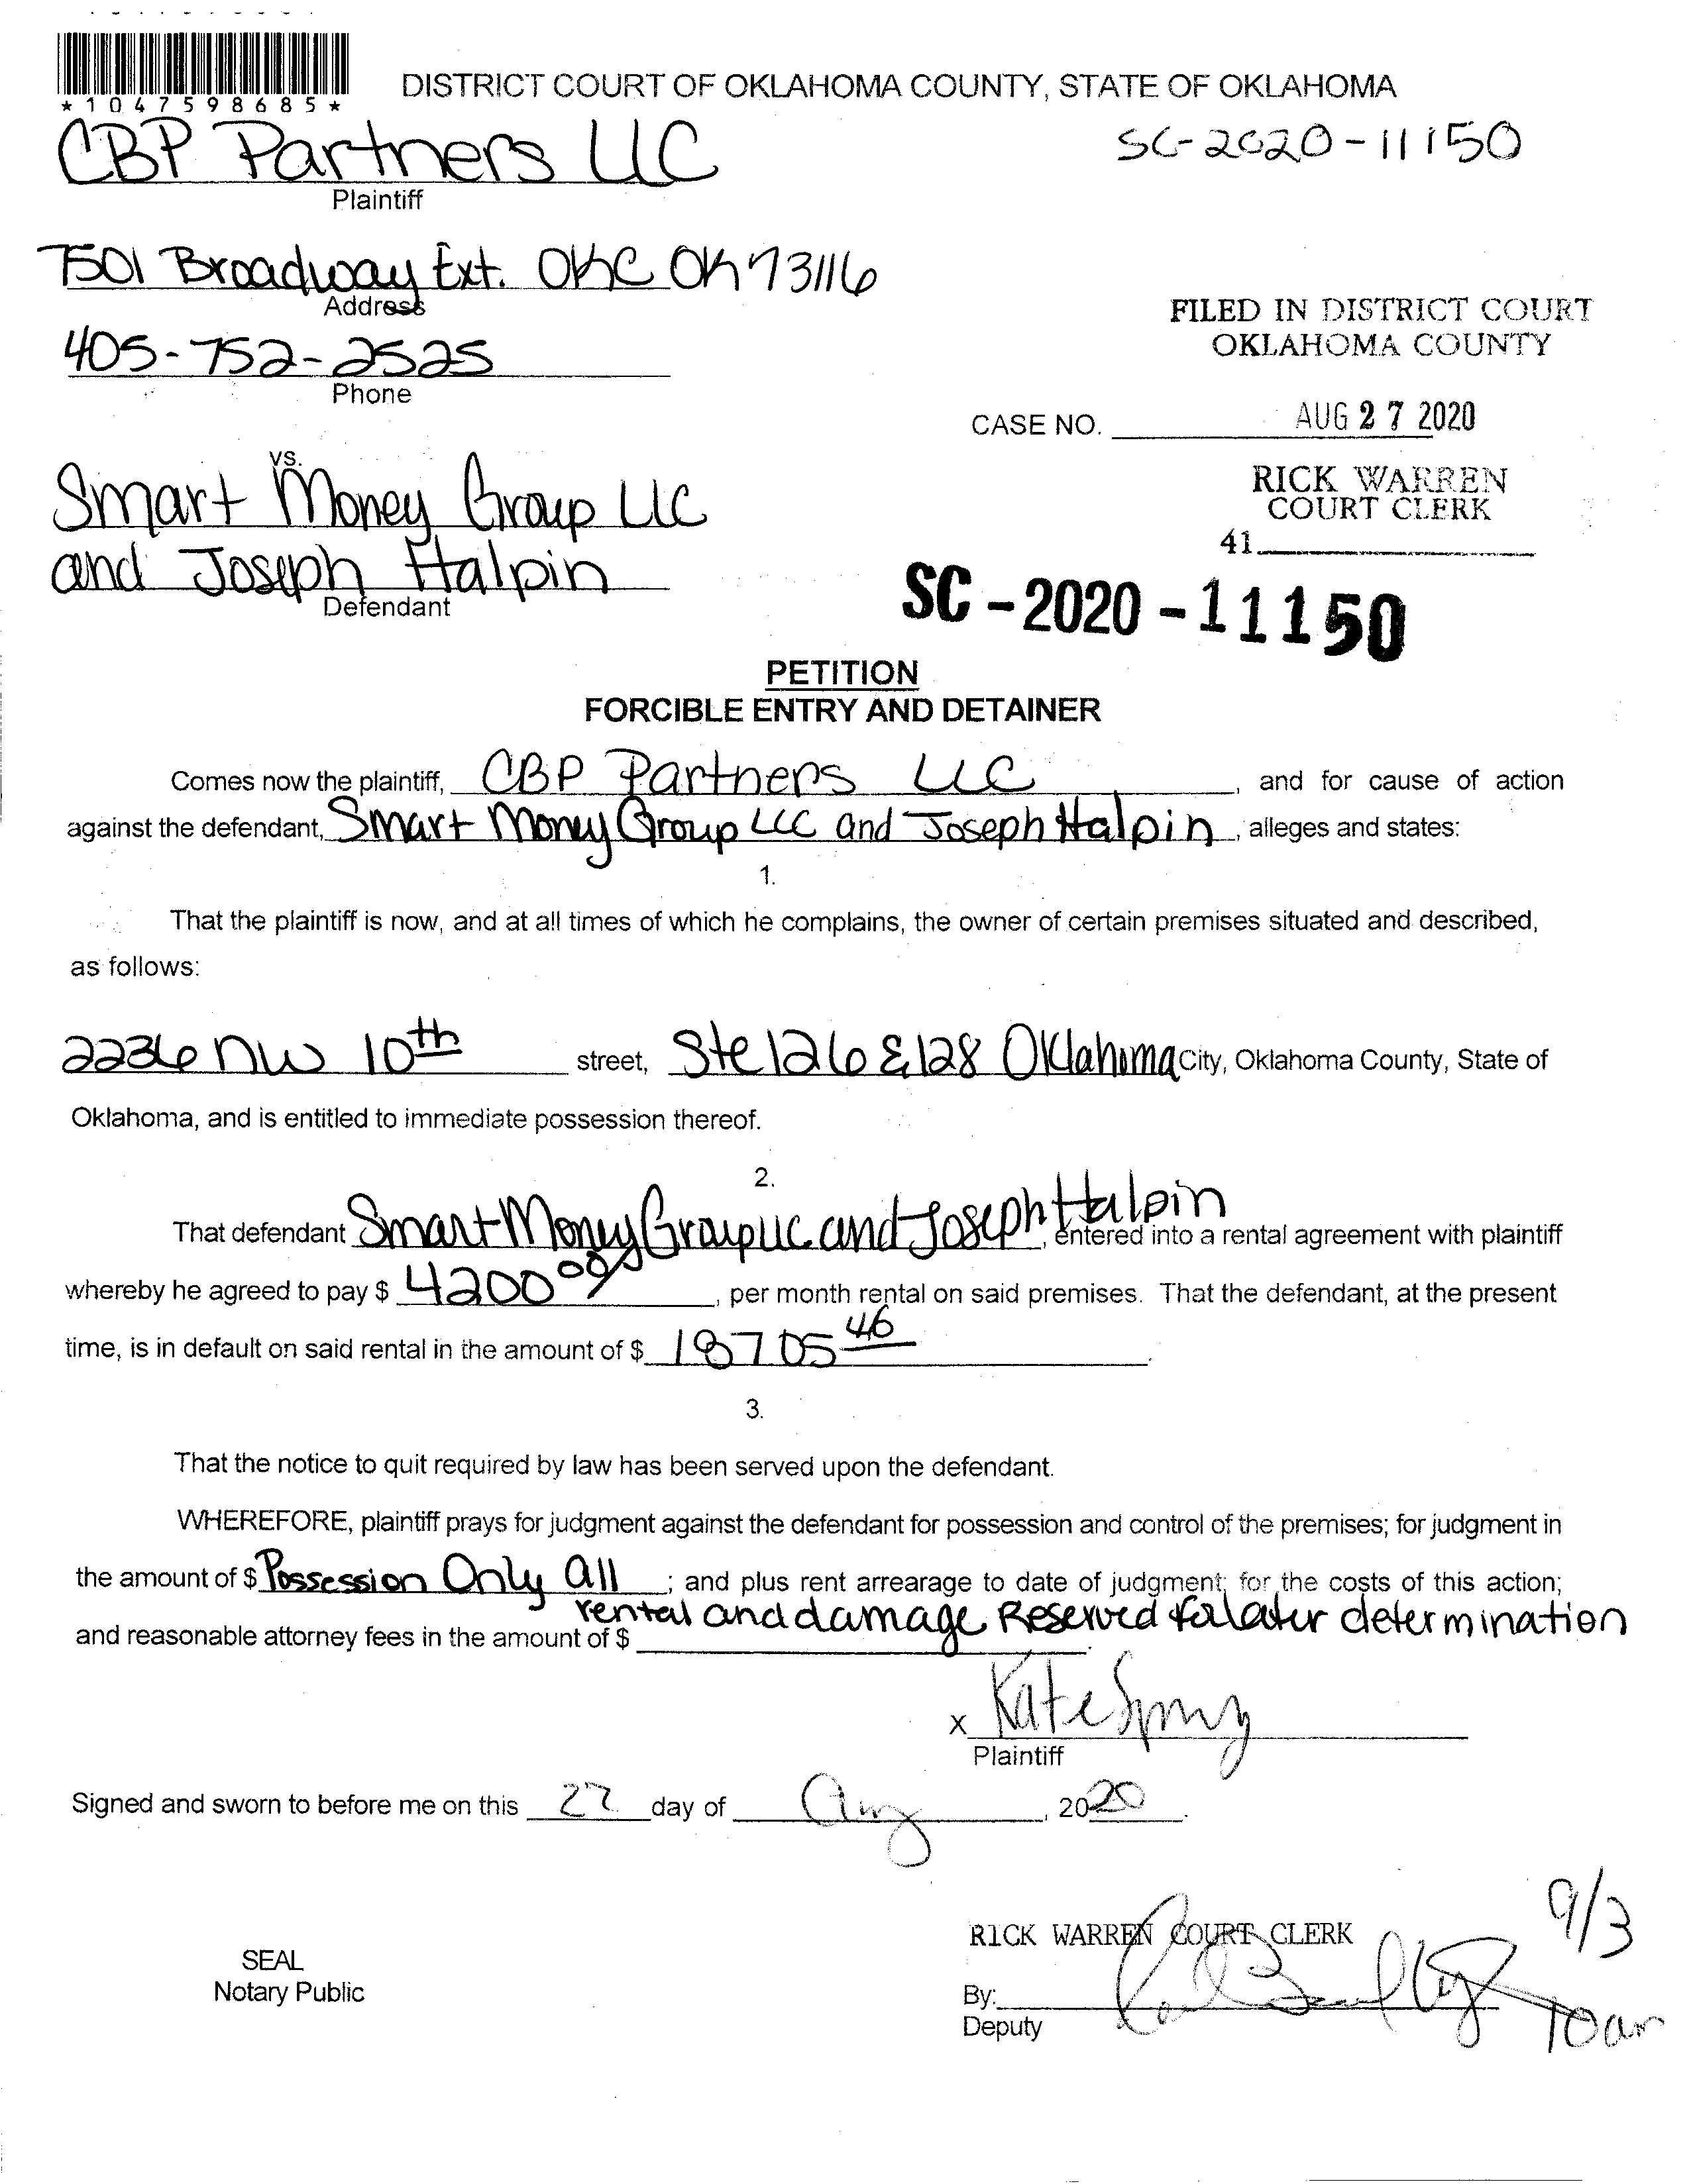 *1047598685*
DISTRICT COURT OF OKLAHOMA COUNTY, STATE OF OKLAHOMA
CBP Partners LLC
SC-2020-11150
Plaintiff
7501 Broadway Ext. OKC OK 73116
Address
FILED IN DISTRICT COURT
OKLAHOMA COUNTY
405-752-2525
Phone
CASE NO.
AUG 27 2020
vs.
RICK WARREN
COURT CLERK
Smart Money Group LLC
41
and Joseph Halpin
Defendant
SC-2020-11150
PETITION
FORCIBLE ENTRY AND DETAINER
Comes now the plaintiff, CBP Partners LLC, and for cause of action
against the defendant, Smart Money Group LLC and Joseph Halpin, alleges and states:
1.
That the plaintiff is now, and at all times of which he complains, the owner of certain premises situated and described,
as follows:
2236 NW 10th street, Ste 126 & 128 Oklahoma City, Oklahoma County, State of
Oklahoma, and is entitled to immediate possession thereof.
2.
That defendant Smart Money Group LLC and Joseph Halpin, entered into a rental agreement with plaintiff
whereby he agreed to pay $ 4200 00, per month rental on said premises. That the defendant, at the present
time, is in default on said rental in the amount of $ 18705 46.
3.
That the notice to quit required by law has been served upon the defendant.
WHEREFORE, plaintiff prays for judgment against the defendant for possession and control of the premises; for judgment in
the amount of $ Possession Only All; and plus rent arrearage to date of judgment; for the costs of this action;
rental and damage Reserved for later determination
and reasonable attorney fees in the amount of $
x Kate
Plaintiff
Signed and sworn to before me on this 27 day of Aug, 2020.
9/3
RICK WARREN COURT CLERK
SEAL
Notary Public
By:
10am
Deputy